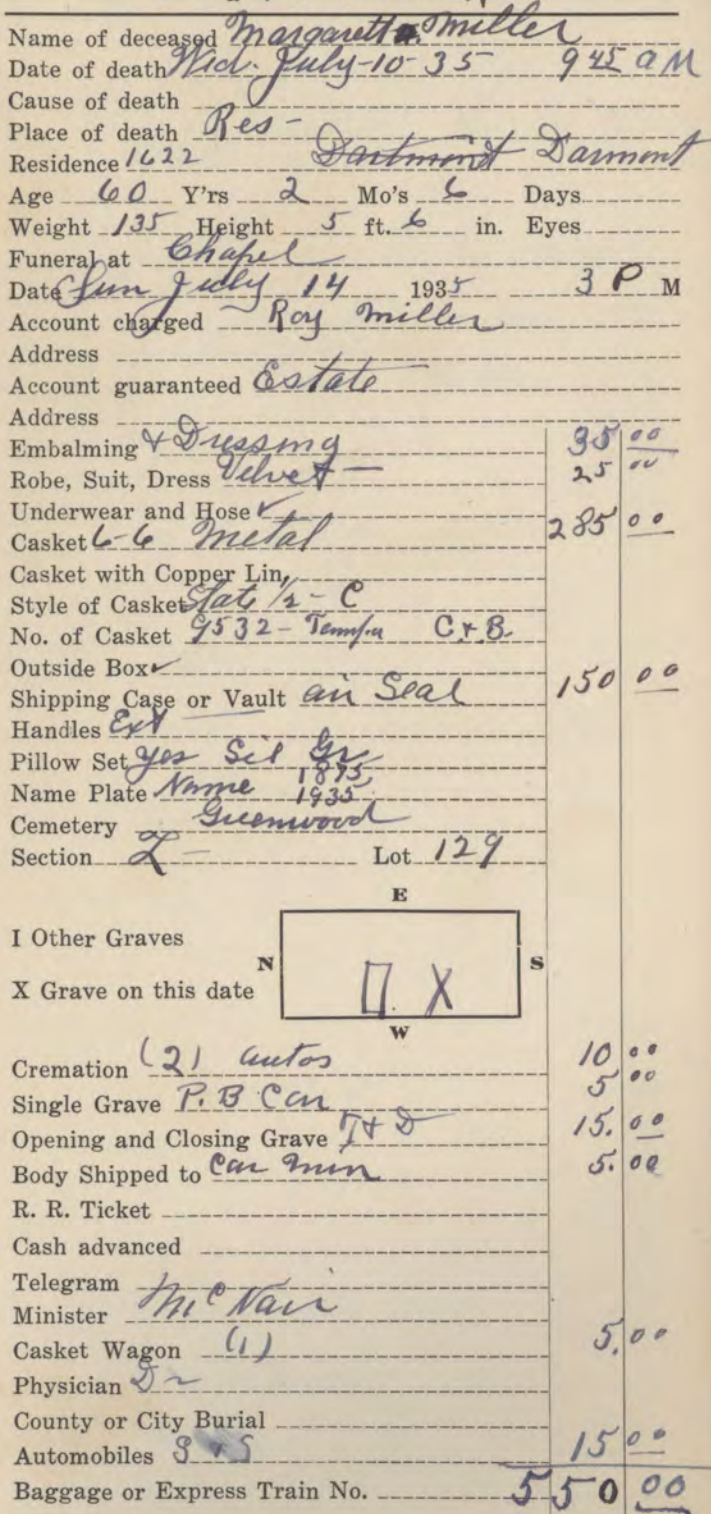 Name of deceased Margarett a. Miller
Date of death Wed. July-10-35 9 45 a M
Cause of death
Place of death Res-
Residence 1622 Dartmont Darmont
Age 60 Y'rs 2 Mo's 6 Days
Weight 135 Height 5 ft. 6 in. Eyes
Funeral at Chapel
Date Sun July 14 1935 3 P M
Account charged Roy Miller
Address
Account guaranteed Estate
Address
Embalming & Dressing 35 00
Robe, Suit, Dress Velvet - 25 00
Underwear and Hose ✓
Casket 6-6 Metal 285 00
Casket with Copper Lin.
Style of Casket State 1/2 - C
No. of Casket 9532- C & B
Outside Box ✓
Shipping Case or Vault air Seal 150 00
Handles Ext
Pillow Set yes Sil Gr
Name Plate Name 1875 1935
Cemetery Greenwood
Section Lot 129
E
I Other Graves
N S
X Grave on this date X
W
Cremation (2) autos 10 00
Single Grave P. B Car 5 00
Opening and Closing Grave T & D 15. 00
Body Shipped to Car Min 5. 00
R. R. Ticket
Cash advanced
Telegram
Minister McNair
Casket Wagon (1) 5. 00
Physician Dr
County or City Burial
Automobiles S & S 15 00
Baggage or Express Train No. 550 00